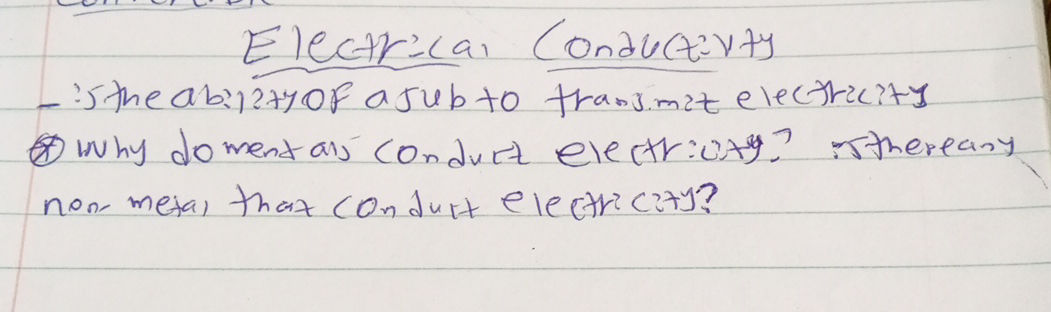 Electrical Conductivity
- is the ability of a sub to transmit electricity
Why do mentals conduct electricity? is there any
non metal that conduct electricity?